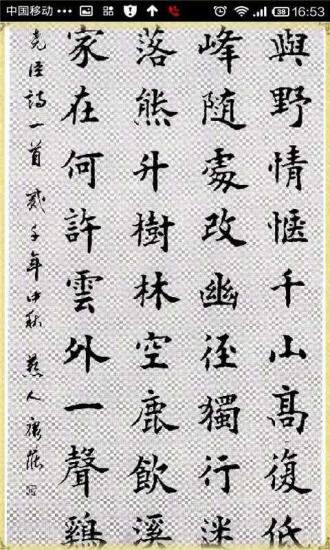 中国移动 38 16:53
與野情愜千山髙復低
峰隨處改幽徑獨行迷
落熊升樹林空鹿飲溪
家在何許雲外一聲鷄
堯臣詩一首 貳千年中秋 燕人